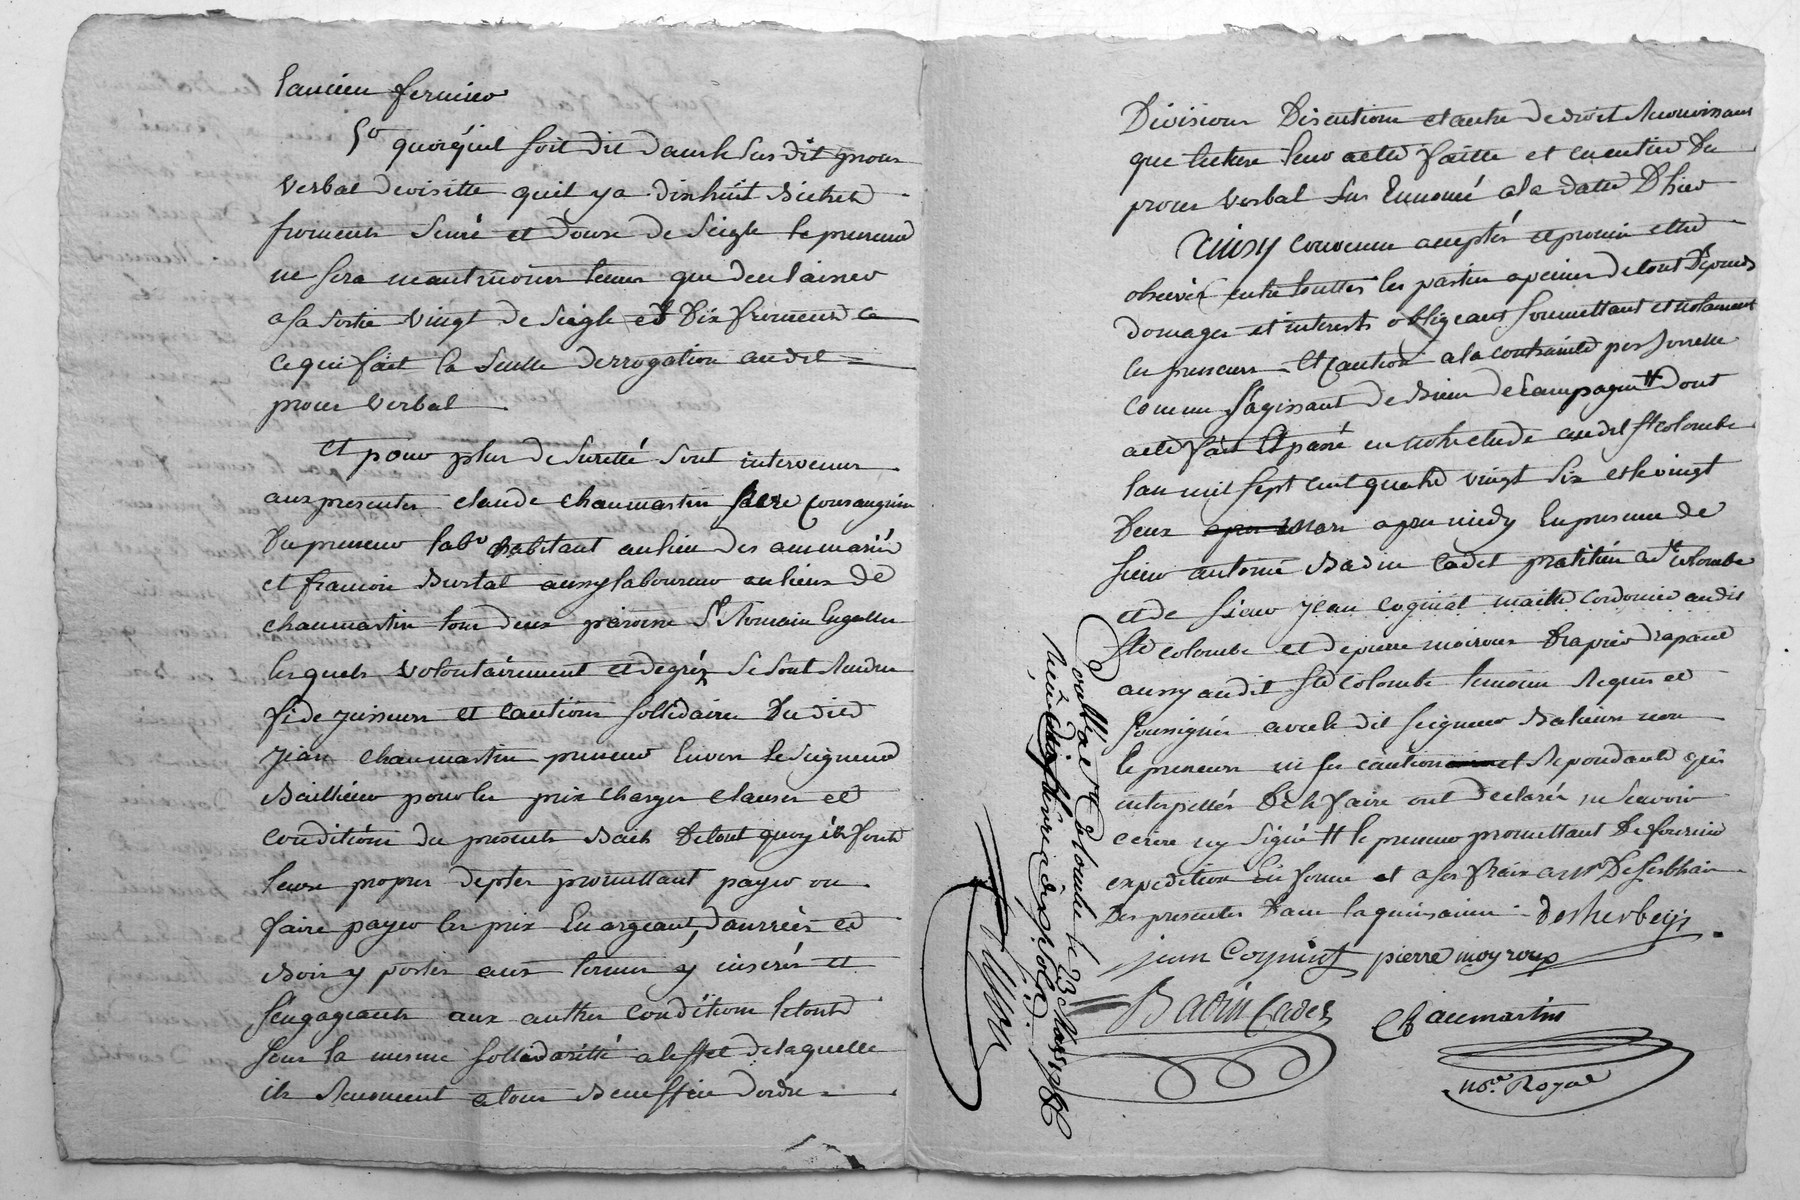 lancien fermier
5º quoiqu'il soit dit dans le sus dit proces
verbal de visitte quil y a dixhuit bichets
froments semé et douse de seigle le preneur
ne sera neantmoins tenus que den laisser
a sa sortie vingt de seigle et dix froment ce
ce qui fait la seulle derrogation audit
proces verbal
et pour plus de suretté sont intervenus
aux presentes claude chaumartin frere consanguin
du preneur labr habitant au lieu des
et francois Burtal aussy laboureur au lieux de
chaumartin tous deux paroisse St Romain Engallie
lesquels volontairement et de gréz se sont rendus
fidejusseurs et cautions sollidaires du dit
jean chaumartin preneur envers le seigneur
Bailleur pour les prix charges clauses et
conditions du present Bail de tout quoy ils font
leurs propres deptes promettant payer ou
faire payer les prix en argeant, danrrées et
Bois y portés aux termes y inserés et
sengageants aux autres conditions le tout
sous la mesme sollidaritté a leffet de laquelle
ils renoncent a tous Beneffice dordre
Division Discutions et autre de droit reconnoissant
que lecture leur a etté faitte et en entier du
proces verbal sus Enoncé a la datte Dhier
Ainsy convenus acceptés et promis ettre
observés entre touttes les parties a peines de tout Depends
domages et interests obligeant soumettant et notament
les preneurs et caution a la contrainte personnelle
comme sagissant de Bien de campagne # dont
acte fait Et passé en notre etude audit Ste colombe
lan mil sept cent quatre vingt six et le vingt
Deux mars apres midy En presence de
sieur antoine Badin cadet pratitien a Ste colombe
et de sieur jean cogniat maitre cordonier audit
Ste colombe et de pierre moiroux Drapier drapant
aussy audit Ste colombe temoins requis et
soussignés avec le dit seigneur Bailleur non
le preneur ni ses cautions et Repondants qui
interpellés De le faire ont declarés ne scavoir
ecrire ny signer # le preneur promettant De fournir
expedition En forme et a ses fraix a Mr Desherbeys
Des presentes Dans la quinsaine desherbeys
jean Cogniat pierre moyroux
Badin Cadet Chaumartin
nore Royal
Controllé a Ste Colombe le 23 Mars 1786